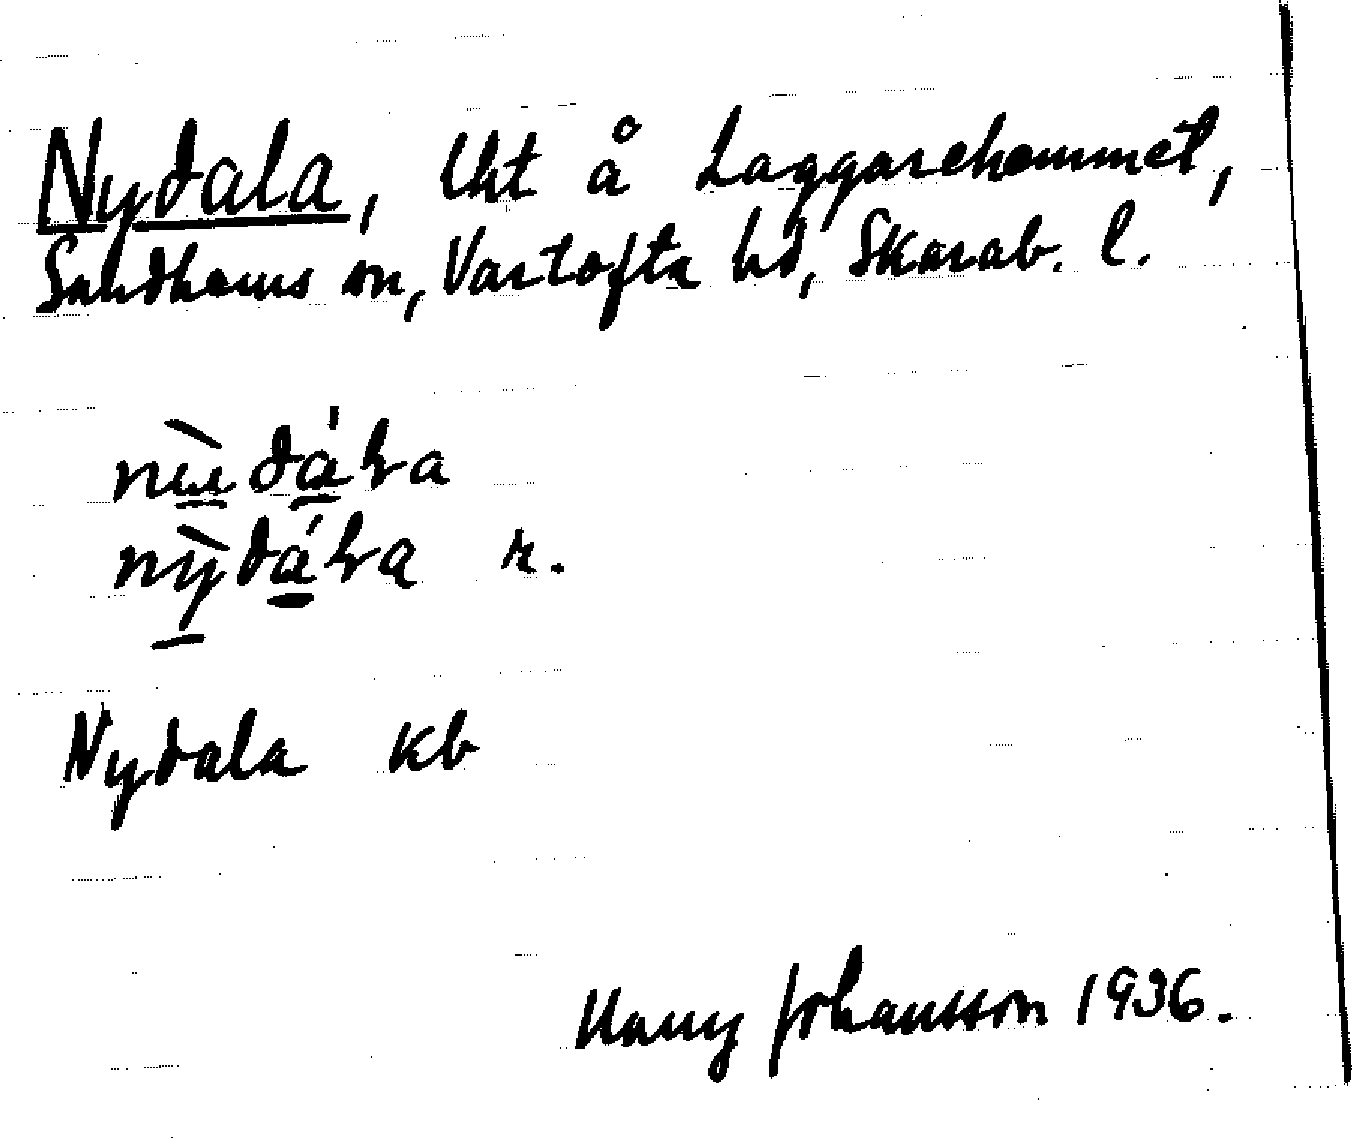 Nydala, lht å Laggarehemmet,
Sandhems sn, Vartofta hd, Skarab. l.
nɯ̀dáɽa
nỳdáɽa r.
Nydala kb
Harry Johansson 1936.